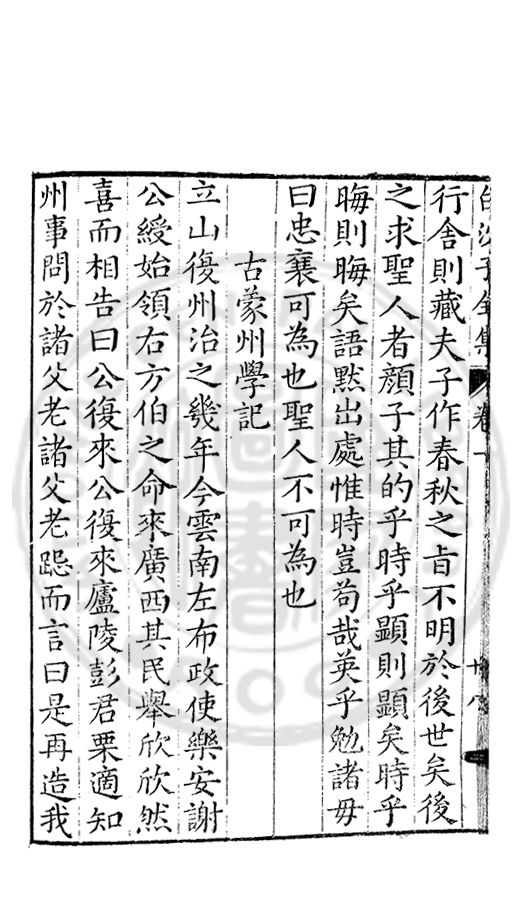 白沙子全集 卷 十八
行舍則藏夫子作春秋之旨不明於後世矣後
之求聖人者顔子其的乎時乎顯則顯矣時乎
晦則晦矣語默出處惟時豈苟哉英乎勉諸毋
曰忠襄可為也聖人不可為也
古蒙州學記
立山復州治之幾年今雲南左布政使樂安謝
公綬始領右方伯之命來廣西其民舉欣欣然
喜而相告曰公復來公復來廬陵彭君栗適知
州事問於諸父老諸父老跽而言曰是再造我